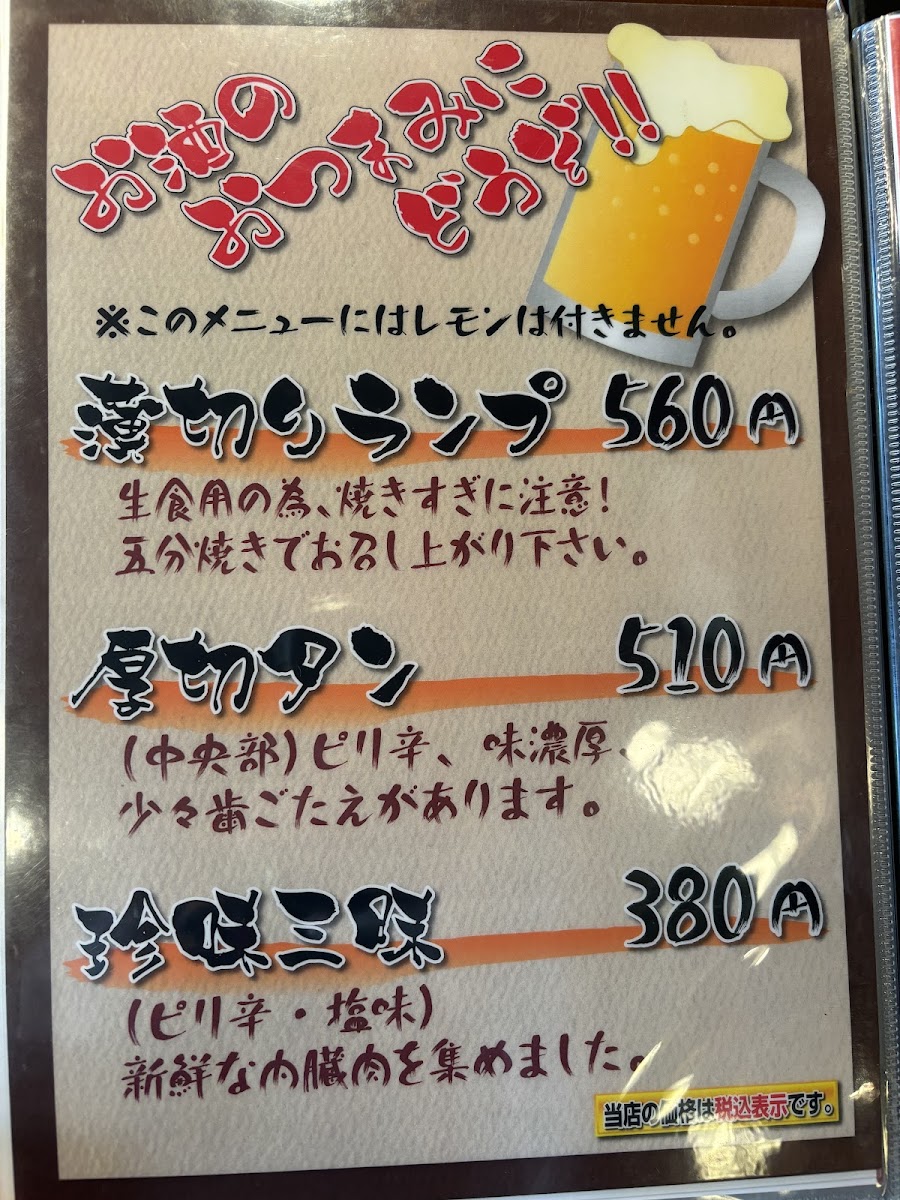 お酒の
おつまみに
どうぞ!!
※このメニューにはレモンは付きません。
薄切りランプ 560円
生食用の為、焼きすぎに注意!
五分焼きでお召し上がり下さい。
厚切タン 510円
(中央部)ピリ辛、味濃厚、
少々歯ごたえがあります。
珍味三味 380円
(ピリ辛・塩味)
新鮮な内臓肉を集めました。
当店の価格は税込表示です。